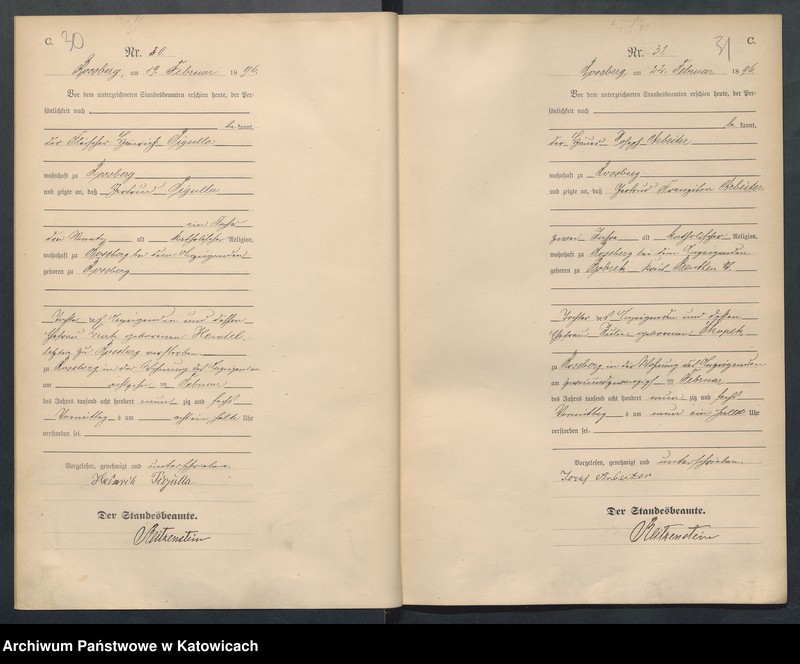 C. 30
Nr. 30
Rossberg, am 19. Februar 1896.
Vor dem unterzeichneten Standesbeamten erschien heute, der Per-
sönlichkeit nach
be kannt,
der Fleischer Heinrich Pigulla
wohnhaft zu Rossberg
und zeigte an, daß Gertrud Pigulla
ein Jahr
Monate alt katholischer Religion,
wohnhaft zu Rossberg bei dem Anzeigenden
geboren zu Rossberg
Tochter des Anzeigenden und dessen
Ehefrau geborenen
letztere zu Rossberg verstorben
zu Rossberg in der Wohnung des Anzeigenden
am achtzehnten Februar
des Jahres tausend acht hundert neun zig und sechs
Vormittag s um acht ein halb Uhr
verstorben sei.
Vorgelesen, genehmigt und unterschrieben.
Heinrik Pigulla
Der Standesbeamte.
Klitzenstein
31 C.
Nr. 31
Rossberg, am 24. Februar 1896.
Vor dem unterzeichneten Standesbeamten erschien heute, der Per-
sönlichkeit nach
be kannt,
der Hauer Joseph Arbeiter
wohnhaft zu Rossberg
und zeigte an, daß Gertrud Franziska Arbeiter
zwei Jahre alt katholischer Religion,
wohnhaft zu Rossberg bei dem Anzeigenden
geboren zu Bobrek Kreis Beuthen
Tochter des Anzeigenden und dessen
Ehefrau geborenen
zu Rossberg in der Wohnung des Anzeigenden
am zweiundzwanzigsten Februar
des Jahres tausend acht hundert neun zig und sechs
Vormittag s um neun ein halb Uhr
verstorben sei.
Vorgelesen, genehmigt und unterschrieben.
Josef Arbeiter
Der Standesbeamte.
Klitzenstein
Archiwum Państwowe w Katowicach